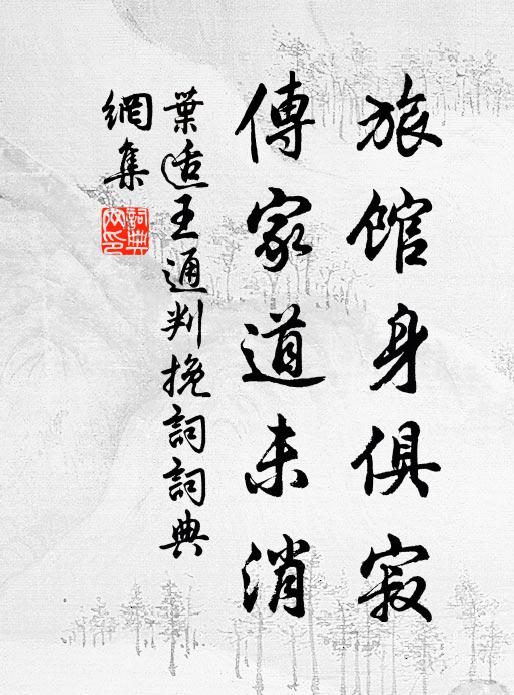 旅館身俱寂
傳家道未消
葉适王通判挽詞詞典
網集
詞典
网印